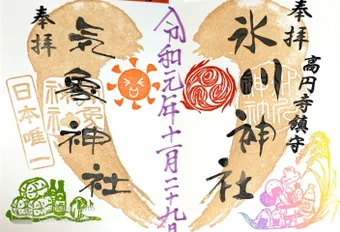 奉拝
高円寺鎮守
氷川神社
令和元年十一月二十九日
奉拝
気象神社
日本唯一